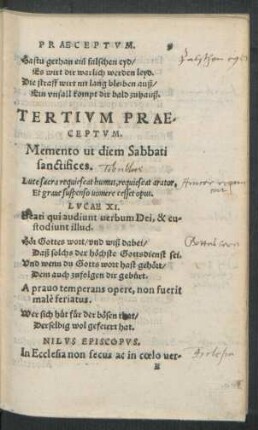 PRÆCEPTVM.
Hastu gethan ein falschen eyd/
Es wirt dir warlich werden leyd.
Die straff wirt nit lang bleiben auß/
Ein vnfall kompt dir bald zuhauß.
TERTIVM PRAE-
CEPTVM.
Memento ut diem Sabbati
sanctifices. Tibullus
Luce sacra requiescat humus, requiescat arator,
Et graue suspenso uomere cesset opus.
LVCAE XI.
Beati qui audiunt uerbum Dei, & cu-
stodiunt illud.
Hör Gottes wort/vnd wiß dabei/
Daß solchs der höchste Gottsdienst sei.
Vnd wenn du Gotts wort hast gehört/
Dem auch zufolgen dir gebürt.
A prauo temperans opere, non fuerit
malè feriatus.
Wer sich hüt für der bösen that/
Derselbig wol gefeyert hat.
NILVS EPISCOPVS.
In Ecclesia non secus ac in cœlo ver-